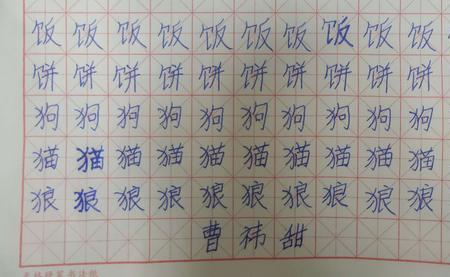 饭饭饭饭饭饭饭饭饭饭
饼饼饼饼饼饼饼饼饼饼
狗狗狗狗狗狗狗狗狗狗
猫猫猫猫猫猫猫猫猫猫
狼狼狼狼狼狼狼狼狼狼
曹祎甜